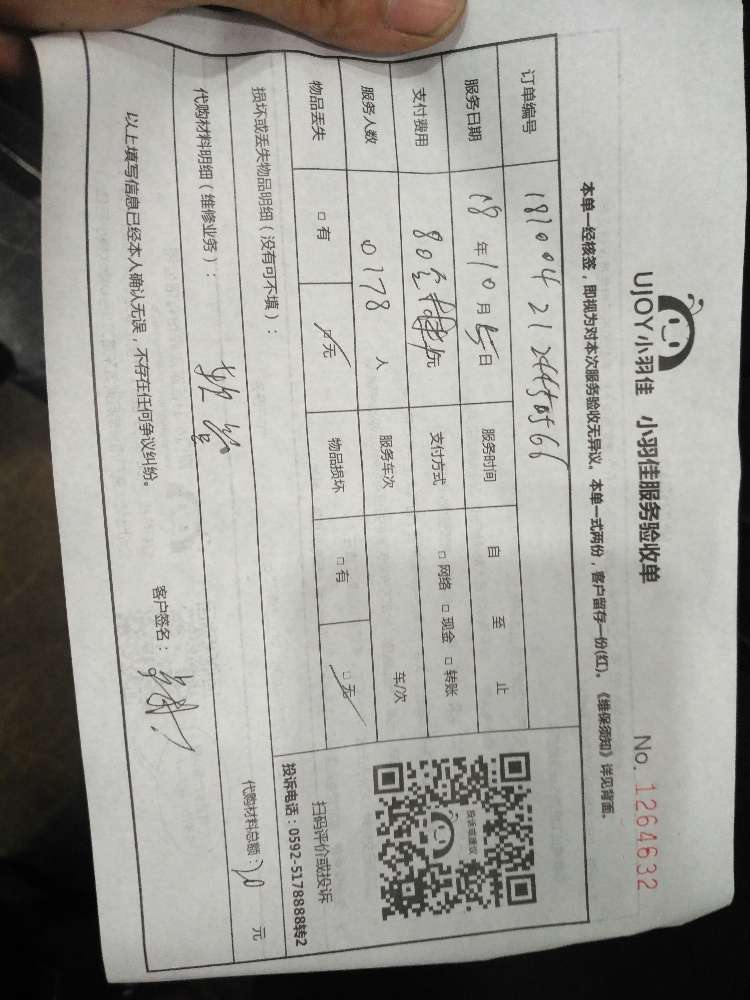 UJOY小羽佳 小羽佳服务验收单 No. 1264632
本单一经核签，即视为对本次服务验收无异议。本单一式两份，客户留存一份(红)。《维保须知》详见背面。
订单编号
服务日期 18年10月5日 服务时间 自 至 止
支付费用 80 元 支付方式 □网络 □现金 □转账
服务人数 0178 人 服务车次 车/次
物品丢失 □有 □无 物品损坏 □有 □无
投诉或建议
扫码评价或投诉
投诉电话：0592-5178888转2
损坏或丢失物品明细（没有可不填）：
代购材料明细（维修业务）： 代购材料总额： 元
以上填写信息已经本人确认无误，不存在任何争议纠纷。 客户签名：